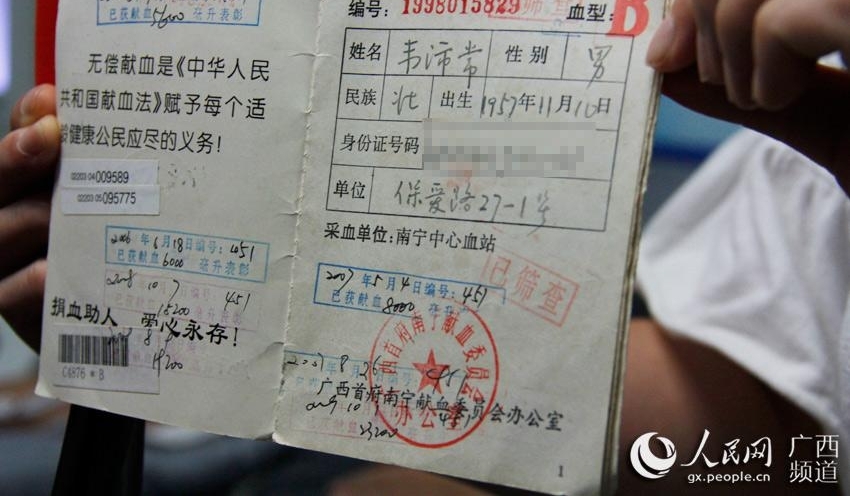 已获献血 5600 毫升表彰
无偿献血是《中华人民
共和国献血法》赋予每个适
龄健康公民应尽的义务！
02203-04 009589
02203-05 095775
2006年6月18日编号：451
已获献血 6000 毫升表彰
2008 10 7 451
15200
捐血助人 爱心永存！
19200
C4876 * B
编号：1998015829 血型：B
姓名 韦沛常 性别 男
民族 壮 出生 1957年11月10日
身份证号码
单位 保爱路27-1号
采血单位：南宁中心血站
已筛查
2007年5月4日编号：451
已获献血 8000 毫升
2007 8 26 451
西首府南宁献血委员会
办公室
广西首府南宁献血委员会办公室
1
人民网 广西频道
gx.people.cn